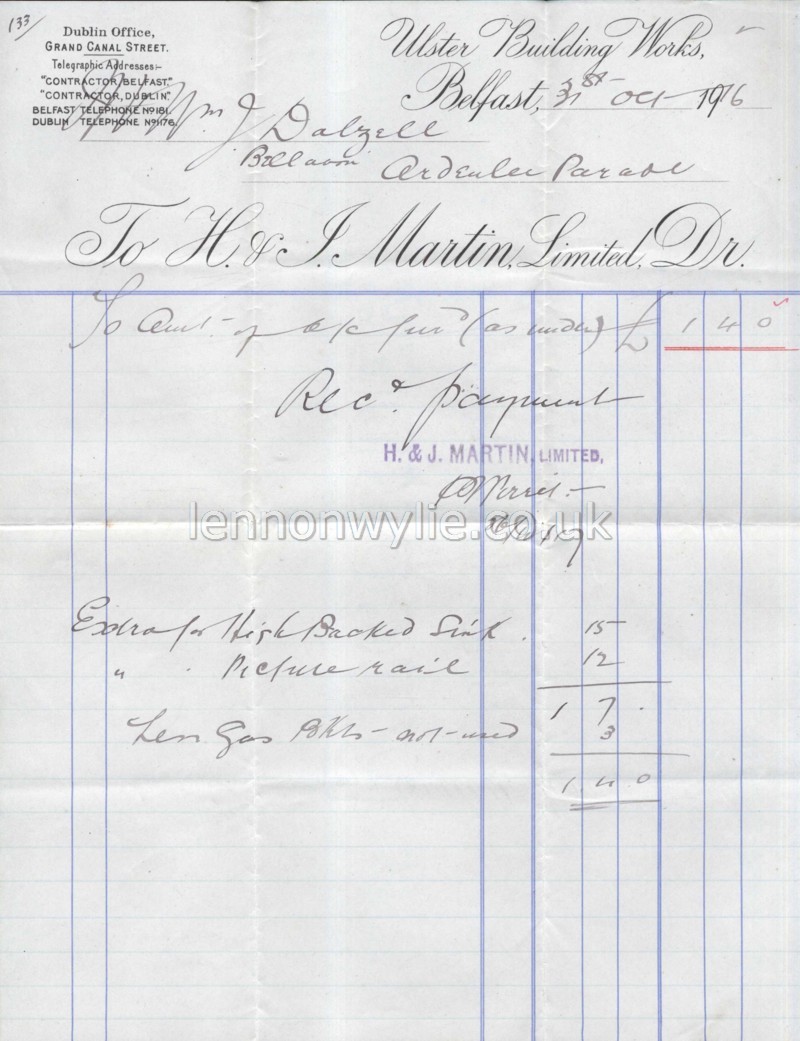 133/
Dublin Office,
GRAND CANAL STREET.
Telegraphic Addresses:-
"CONTRACTOR, BELFAST."
"CONTRACTOR, DUBLIN."
BELFAST TELEPHONE Nº 181.
DUBLIN TELEPHONE Nº 1176.
Ulster Building Works,
Belfast, 31st Oct 1916
J Dalzell
Parade
To H. & J. Martin, Limited, Dr.
To Amt of (as under) £ 1 4 0
Recd. payment
H. & J. MARTIN, LIMITED,
lennonwylie.co.uk
Extra for High Backed Sink. 15
" . Picture rail 12
1 7 .
Less Gas Bkts not used 3
1 4 0